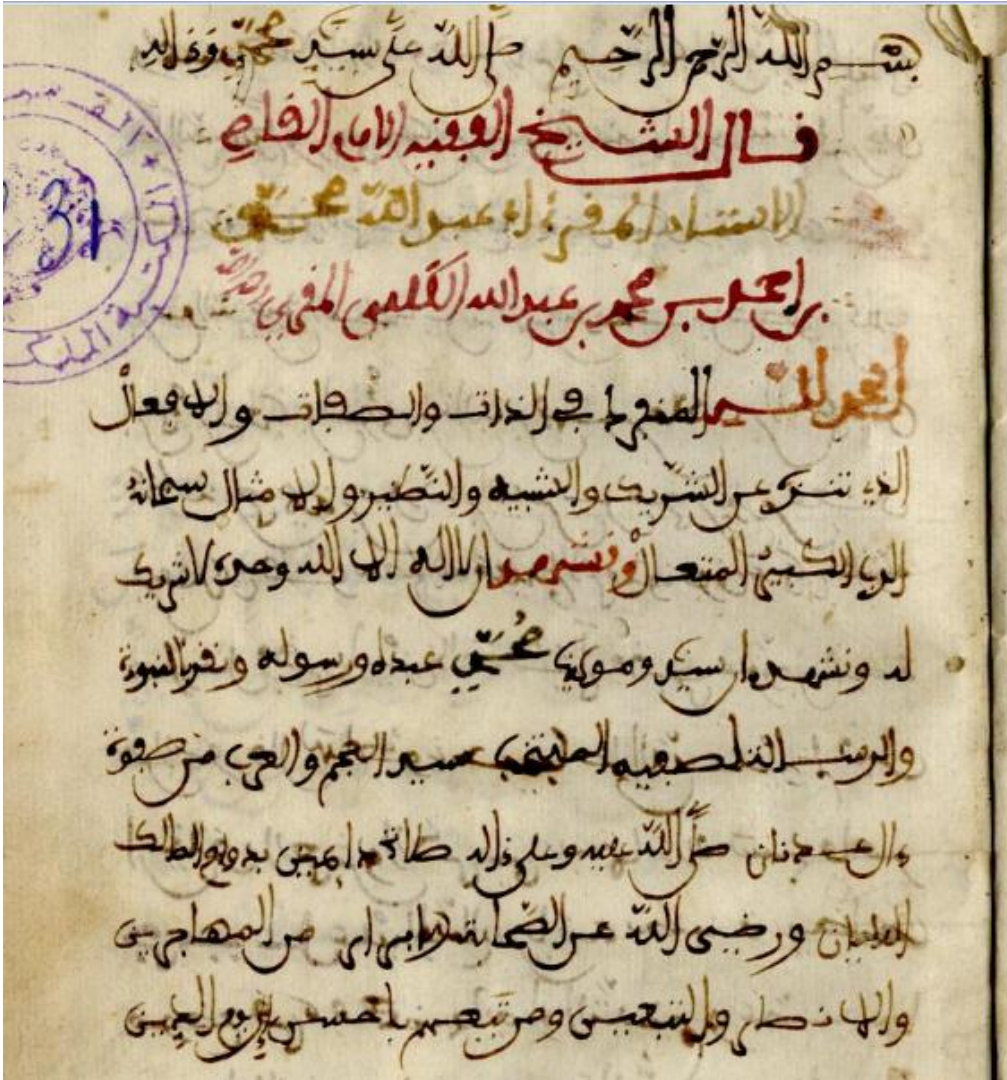 بسم الله الرحمن الرحيم صلى الله على سيد محمد وءاله
قال الشيخ الفقيه الامام القاضي
الاستاد المقرئ عبد الله محمد
بن احمد بن محمد بن عبد الله المقري رحمه الله
الحمد لله المنفرد في الذات والصفات والافعال
الذي تنزه عن الشريك والشبيه والنظير والامثال سبحانه
الرب الكبير المتعال ونشهد ان لا اله الا الله وحده لا شريك
له ونشهد ان سيد ومولنا محمد عبده ورسوله النبوة
سيد العجم والعرب من صفوة
ءال عدنان صلى الله عليه وعلى ءاله صلاة
ورضي الله عن الصحابة الابرار من المهاجرين
والانصار والتبعين ومن تبعهم باحسن الى يوم الدين
31